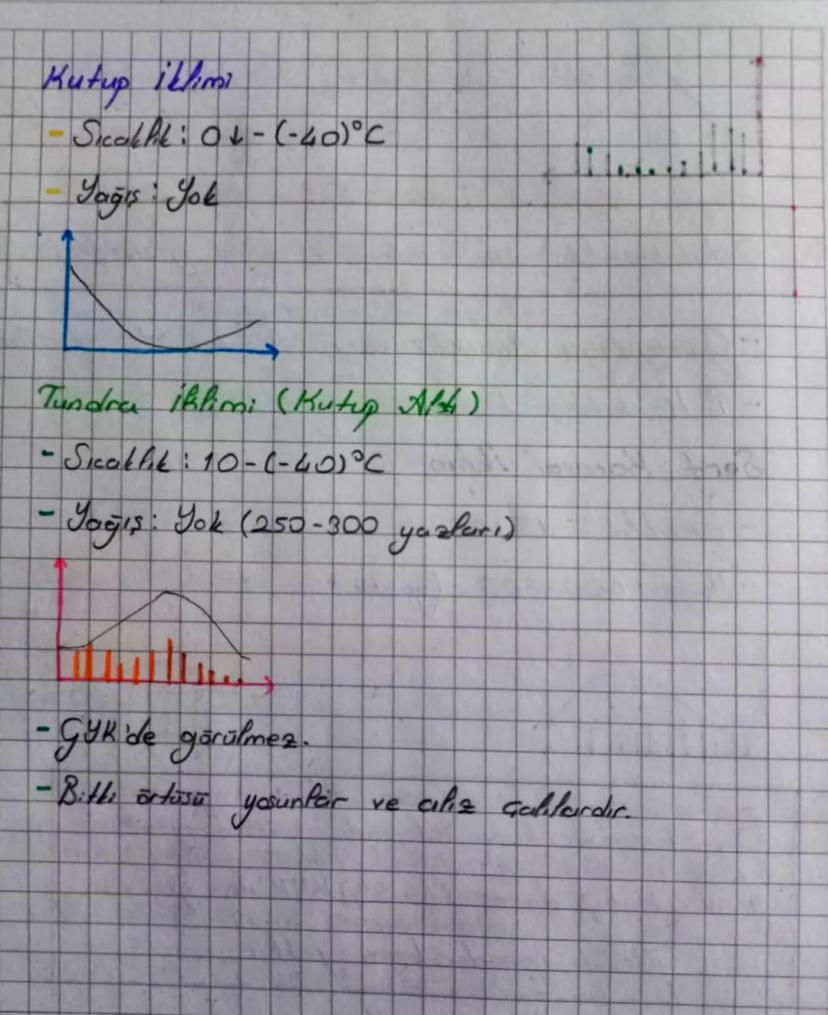 Kutup iklimi
- Sıcaklık: 0↓-(-40)°C
- Yağış: Yok
Tundra iklimi (Kutup Altı)
- Sıcaklık: 10-(-40)°C
- Yağış: Yok (250-300 yazları)
- GYK'de görülmez.
- Bitki örtüsü yosunlar ve cılız çalılardır.